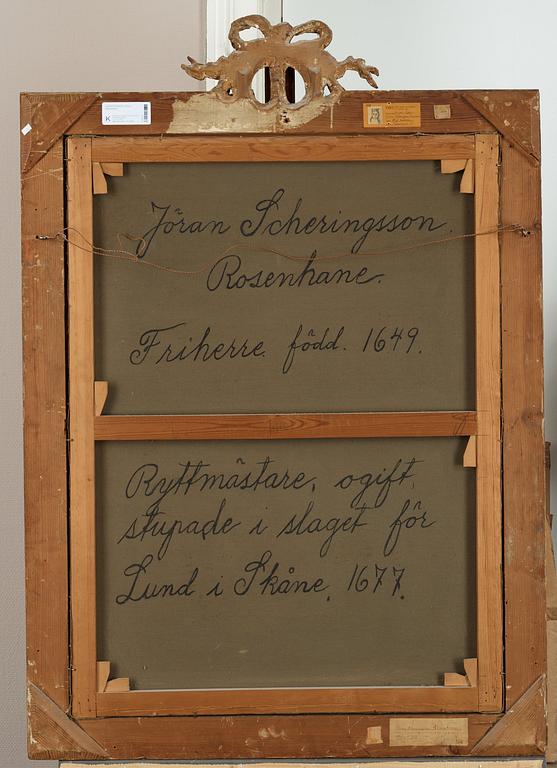 K
Jöran Scheringsson.
Rosenhane.
Friherre. född. 1649.
Ryttmästare, ogift,
stupade i slaget för
Lund i Skåne, 1677.